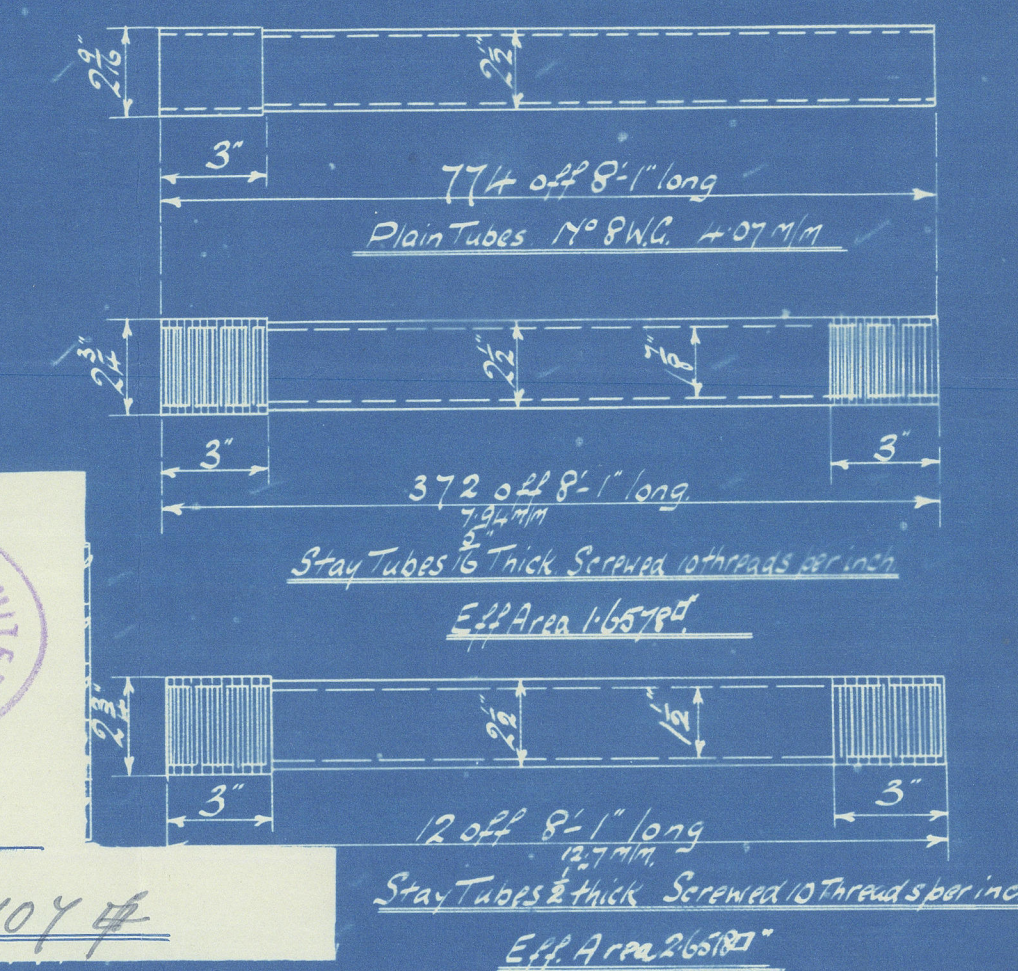 2 9/16
2 1/2"
3"
774 off 8'-1" long
Plain Tubes. Nº 8 W.G. 4·07 M/M
2 3/4"
2 1/2"
1 7/8"
3"
3"
372 off 8'-1" long.
7·94 M/M
Stay Tubes 5/16" Thick Screwed 10 threads per inch.
Eff Area 1·6578□".
2 3/4"
2 1/2"
1 1/2"
3"
3"
12 off 8'-1" long
12·7 M/M.
Stay Tubes 1/2" thick Screwed 10 Threads per inc
Eff. Area 2·6518□"